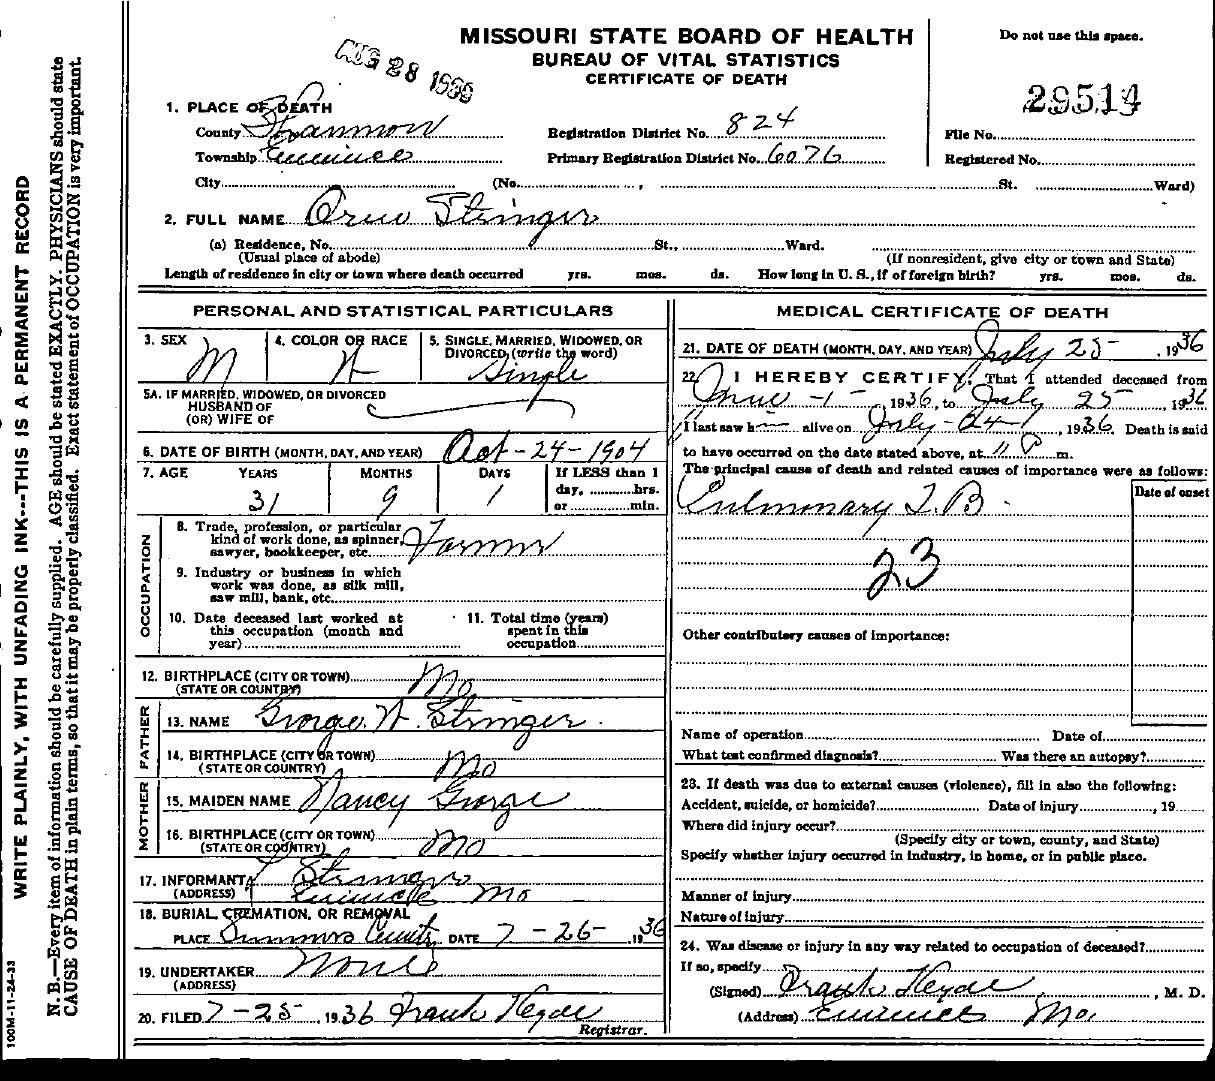 MISSOURI STATE BOARD OF HEALTH
BUREAU OF VITAL STATISTICS
CERTIFICATE OF DEATH
Do not use this space.
AUG 28 1936
29514
1. PLACE OF DEATH
County Shannon Registration District No. 824 File No.
Township Eminence Primary Registration District No. 6076 Registered No.
City (No. , St. Ward)
2. FULL NAME Stringer
(a) Residence, No. St., Ward.
(Usual place of abode) (If nonresident, give city or town and State)
Length of residence in city or town where death occurred yrs. mos. ds. How long in U. S., if of foreign birth? yrs. mos. ds.
PERSONAL AND STATISTICAL PARTICULARS
3. SEX 4. COLOR OR RACE 5. SINGLE, MARRIED, WIDOWED, OR
DIVORCED (write the word)
M W Single
5A. IF MARRIED, WIDOWED, OR DIVORCED
HUSBAND OF
(OR) WIFE OF
6. DATE OF BIRTH (MONTH, DAY, AND YEAR) Oct-24-1904
7. AGE YEARS MONTHS DAYS If LESS than 1
day, hrs.
or min.
31 9 1
OCCUPATION
8. Trade, profession, or particular
kind of work done, as spinner,
sawyer, bookkeeper, etc. Farmer
9. Industry or business in which
work was done, as silk mill,
saw mill, bank, etc.
10. Date deceased last worked at
this occupation (month and
year)
11. Total time (years)
spent in this
occupation
12. BIRTHPLACE (CITY OR TOWN) Mo
(STATE OR COUNTRY)
FATHER
13. NAME George W. Stringer
14. BIRTHPLACE (CITY OR TOWN) Mo
(STATE OR COUNTRY)
MOTHER
15. MAIDEN NAME Nancy George
16. BIRTHPLACE (CITY OR TOWN) Mo
(STATE OR COUNTRY)
17. INFORMANT Stringer
(ADDRESS) Eminence Mo
18. BURIAL, CREMATION, OR REMOVAL
PLACE DATE 7-26- 1936
19. UNDERTAKER None
(ADDRESS)
20. FILED 7-25-, 1936 Frank Hyde
Registrar.
MEDICAL CERTIFICATE OF DEATH
21. DATE OF DEATH (MONTH, DAY, AND YEAR) July 25-, 1936
22. I HEREBY CERTIFY, That I attended deceased from
June -1-, 1936, to July 25-, 1936
I last saw h alive on July-24-, 1936. Death is said
to have occurred on the date stated above, at 11 P m.
The principal cause of death and related causes of importance were as follows:
Date of onset
Pulmonary T.B.
23
Other contributory causes of importance:
Name of operation Date of
What test confirmed diagnosis? Was there an autopsy?
23. If death was due to external causes (violence), fill in also the following:
Accident, suicide, or homicide? Date of injury , 19
Where did injury occur?
(Specify city or town, county, and State)
Specify whether injury occurred in industry, in home, or in public place.
Manner of injury
Nature of injury
24. Was disease or injury in any way related to occupation of deceased?
If so, specify
(Signed) Frank Hyde, M. D.
(Address) Eminence Mo.
WRITE PLAINLY, WITH UNFADING INK---THIS IS A PERMANENT RECORD
N. B.—Every item of information should be carefully supplied. AGE should be stated EXACTLY. PHYSICIANS should state
CAUSE OF DEATH in plain terms, so that it may be properly classified. Exact statement of OCCUPATION is very important.
100M-11-24-33